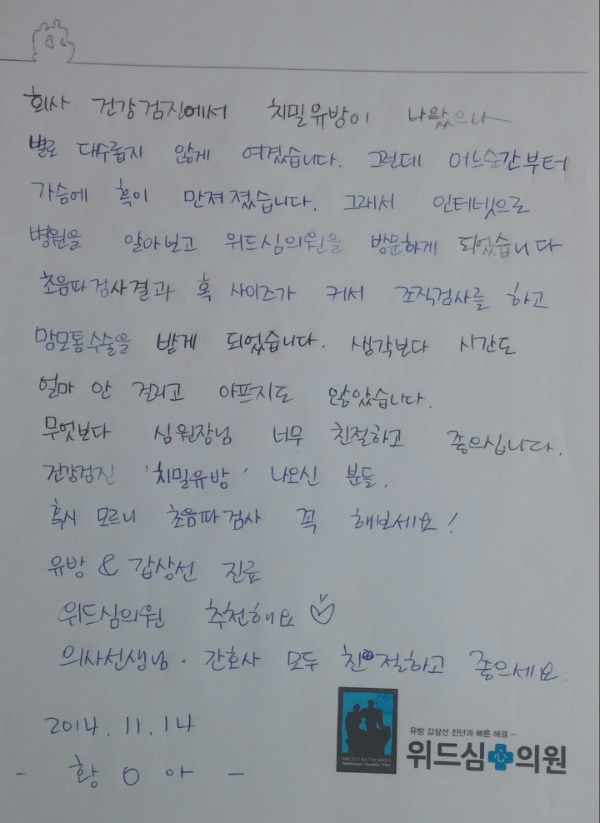 회사 건강검진에서 치밀유방이 나왔으나
별로 대수롭지 않게 여겼습니다. 그런데 어느순간부터
가슴에 혹이 만져졌습니다. 그래서 인터넷으로
병원을 알아보고 위드심의원을 방문하게 되었습니다
초음파검사결과 혹 사이즈가 커서 조직검사를 하고
맘모톰수술을 받게 되었습니다. 생각보다 시간도
얼마 안 걸리고 아프지도 않았습니다.
무엇보다 심원장님 너무 친절하고 좋으십니다.
건강검진 '치밀유방' 나오신 분들.
혹시 모르니 초음파검사 꼭 해보세요!
유방 & 갑상선 진료
위드심의원 추천해요
의사선생님. 간호사 모두 친절하고 좋으세요.
2014.11.14
- 황 O 아 -
유방 갑상선 진단과 빠른 해결 -
위드심 心 의원